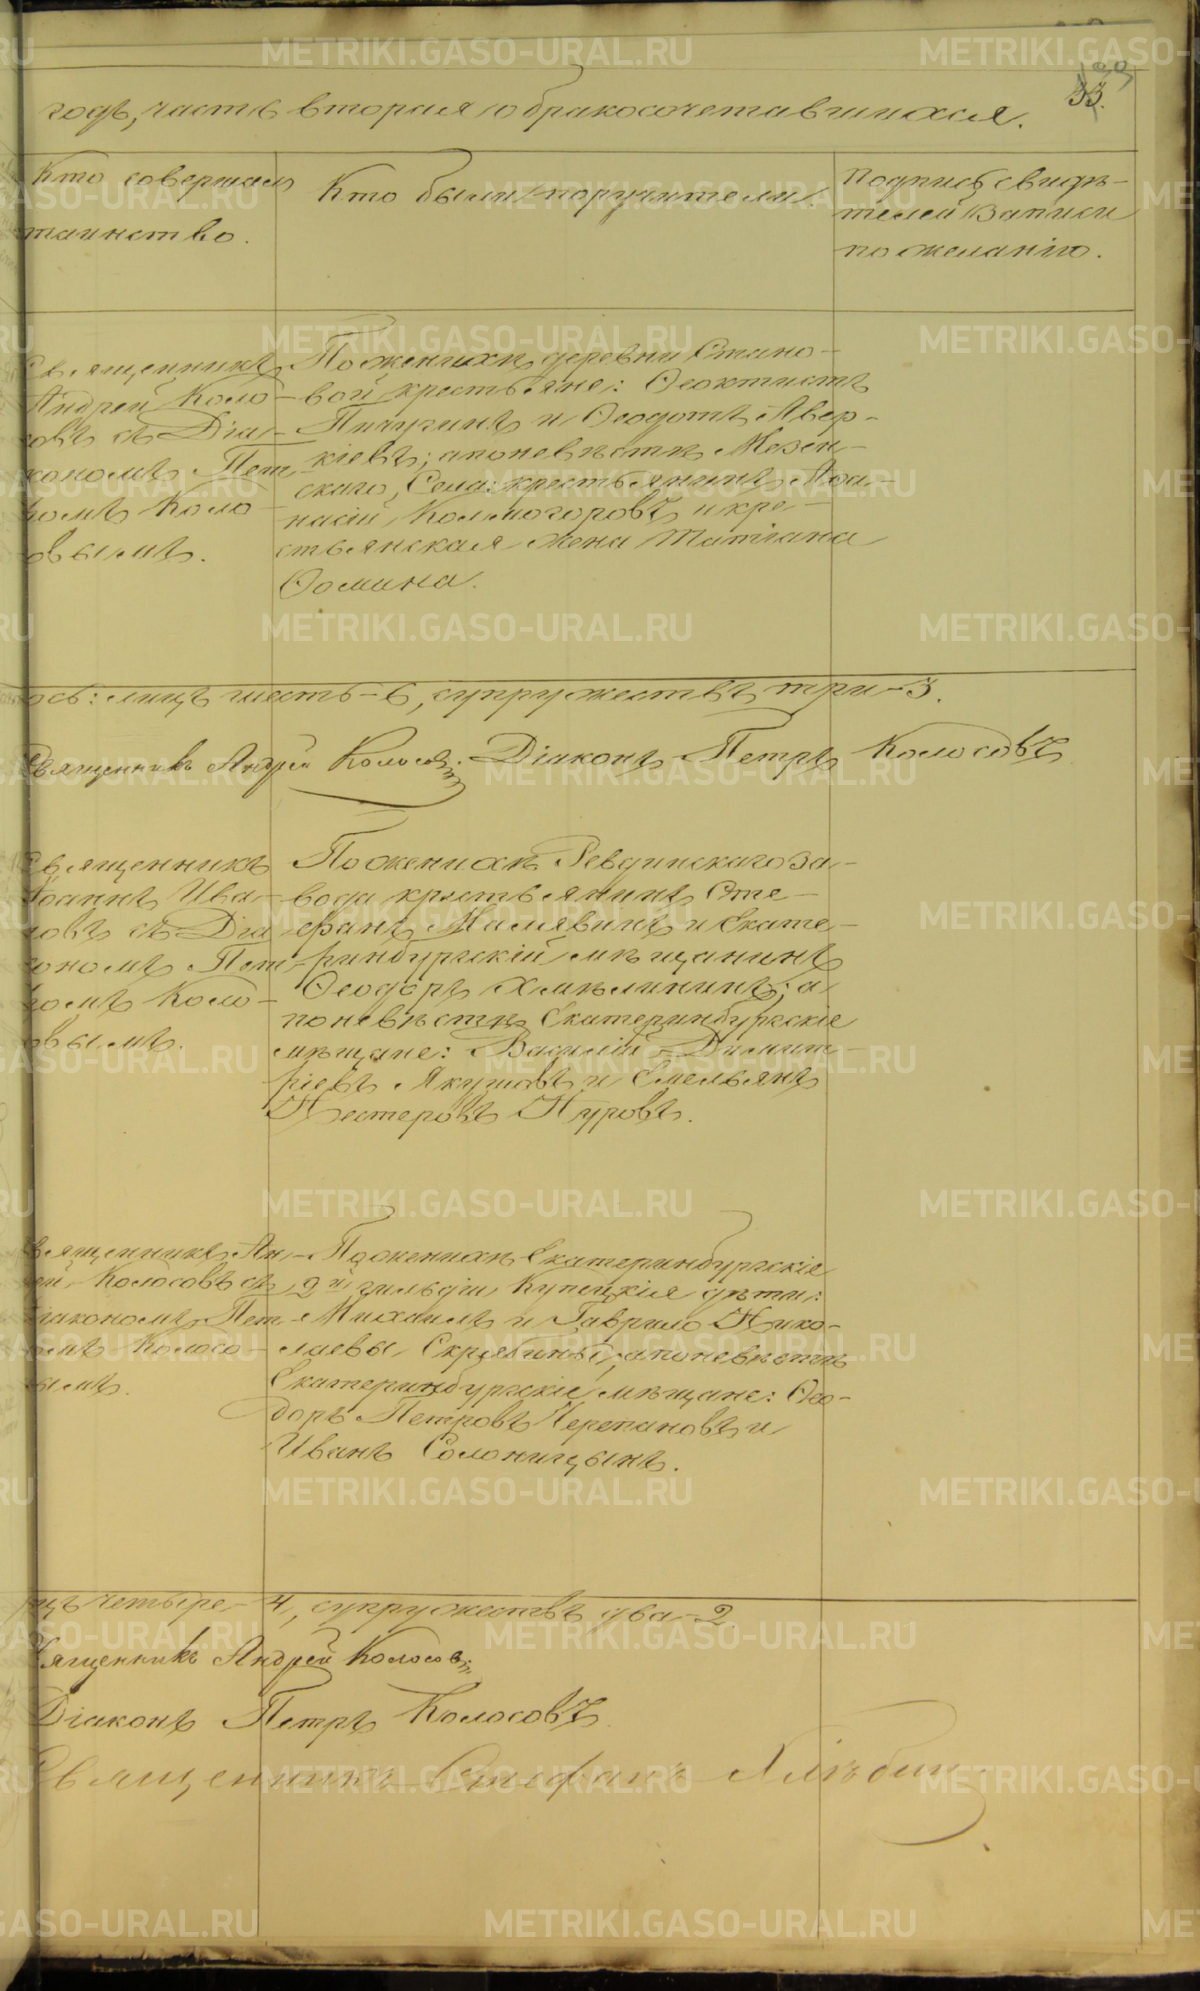 годъ, часть вторая о бракосочетавшихся.
33.
Кто совершалъ
таинство.
Кто были поручители.
Подпись свидѣ-
телей записи
по желанію.
Священникъ
Андрей Коло-
совъ съ Діа-
кономъ Пет
ромъ Коло-
овымъ.
По женихѣ деревни Стано-
вой крестьяне: Ѳеоктистъ
Пичугинъ и Ѳеодотъ Авер-
кіевъ; а по невѣстѣ Мезен-
скаго Села: крестьянинъ Аѳа-
насій Колмогоровъ и кре-
стьянская жена Татіана
Ѳомина.
ось: лицъ шесть – 6, супружествъ три – 3.
Священникъ Андрей Колосовъ. Діаконъ Петръ Колосовъ
Священникъ
Іоаннъ Ива-
новъ съ Діа
кономъ Пет-
ромъ Коло-
овымъ.
По женихѣ Ревдинскаго за-
вода крестьянинъ Сте-
фанъ Малявинъ и Екате-
ринбургскій мѣщанинъ
Ѳеодоръ Хмѣлининъ; а
по невѣстѣ Екатеринбургскіе
мѣщане: Василій Димит-
ріевъ Якушовъ и Емельянъ
Нестеровъ Нуровъ.
вященникъ Ан-
ей Колосовъ съ
Діакономъ Пет-
омъ Колосо-
ымъ.
По женихѣ Екатеринбургскіе
2й гильдіи Купецкія дѣти:
Михаилъ и Гаврило Нико-
лаевы Скрябины; а по невѣстѣ
Екатеринбургскіе мѣщане: Ѳео-
доръ Петровъ Черепановъ и
Иванъ Солоницынъ.
ицъ четыре – 4, супружествъ два – 2.
вященникъ Андрей Колосовъ
Діаконъ Петръ Колосовъ
Священникъ Стефанъ Хлѣбин
METRIKI.GASO-URAL.RU